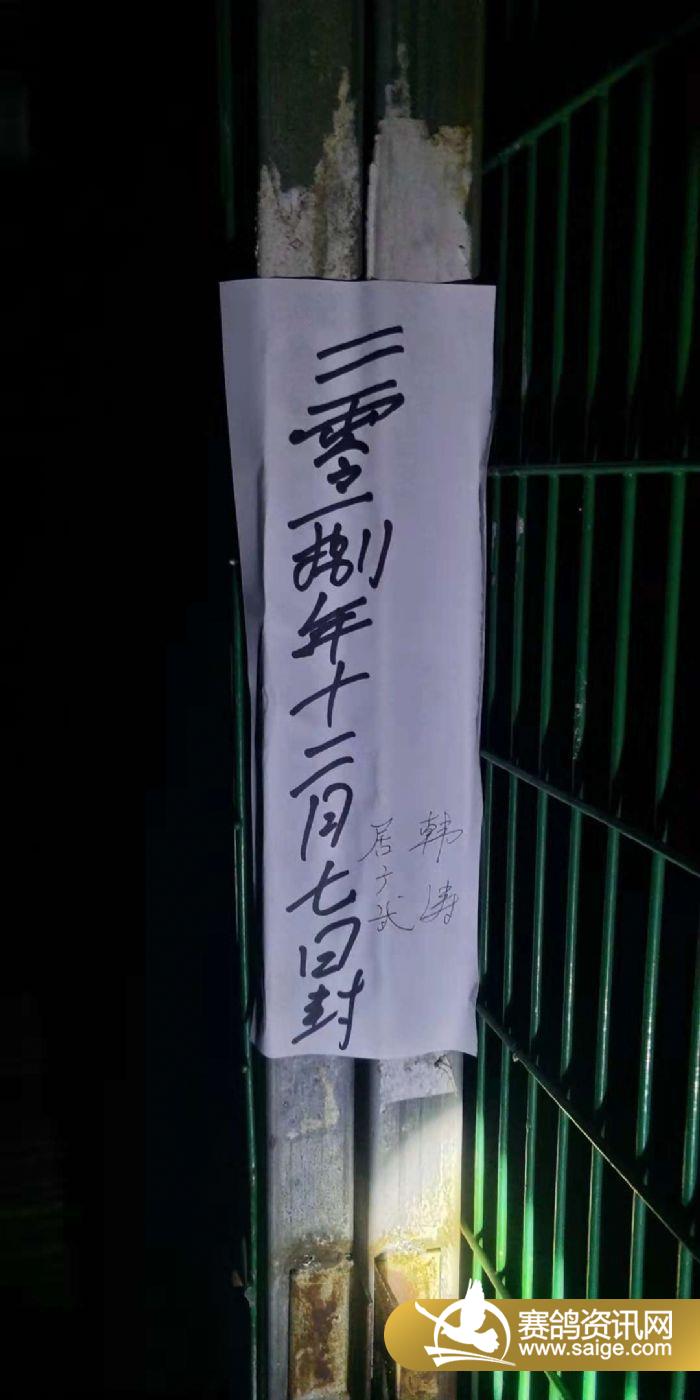 二零一捌年十二月七日封
韩涛
居广武
赛鸽资讯网
www.saige.com